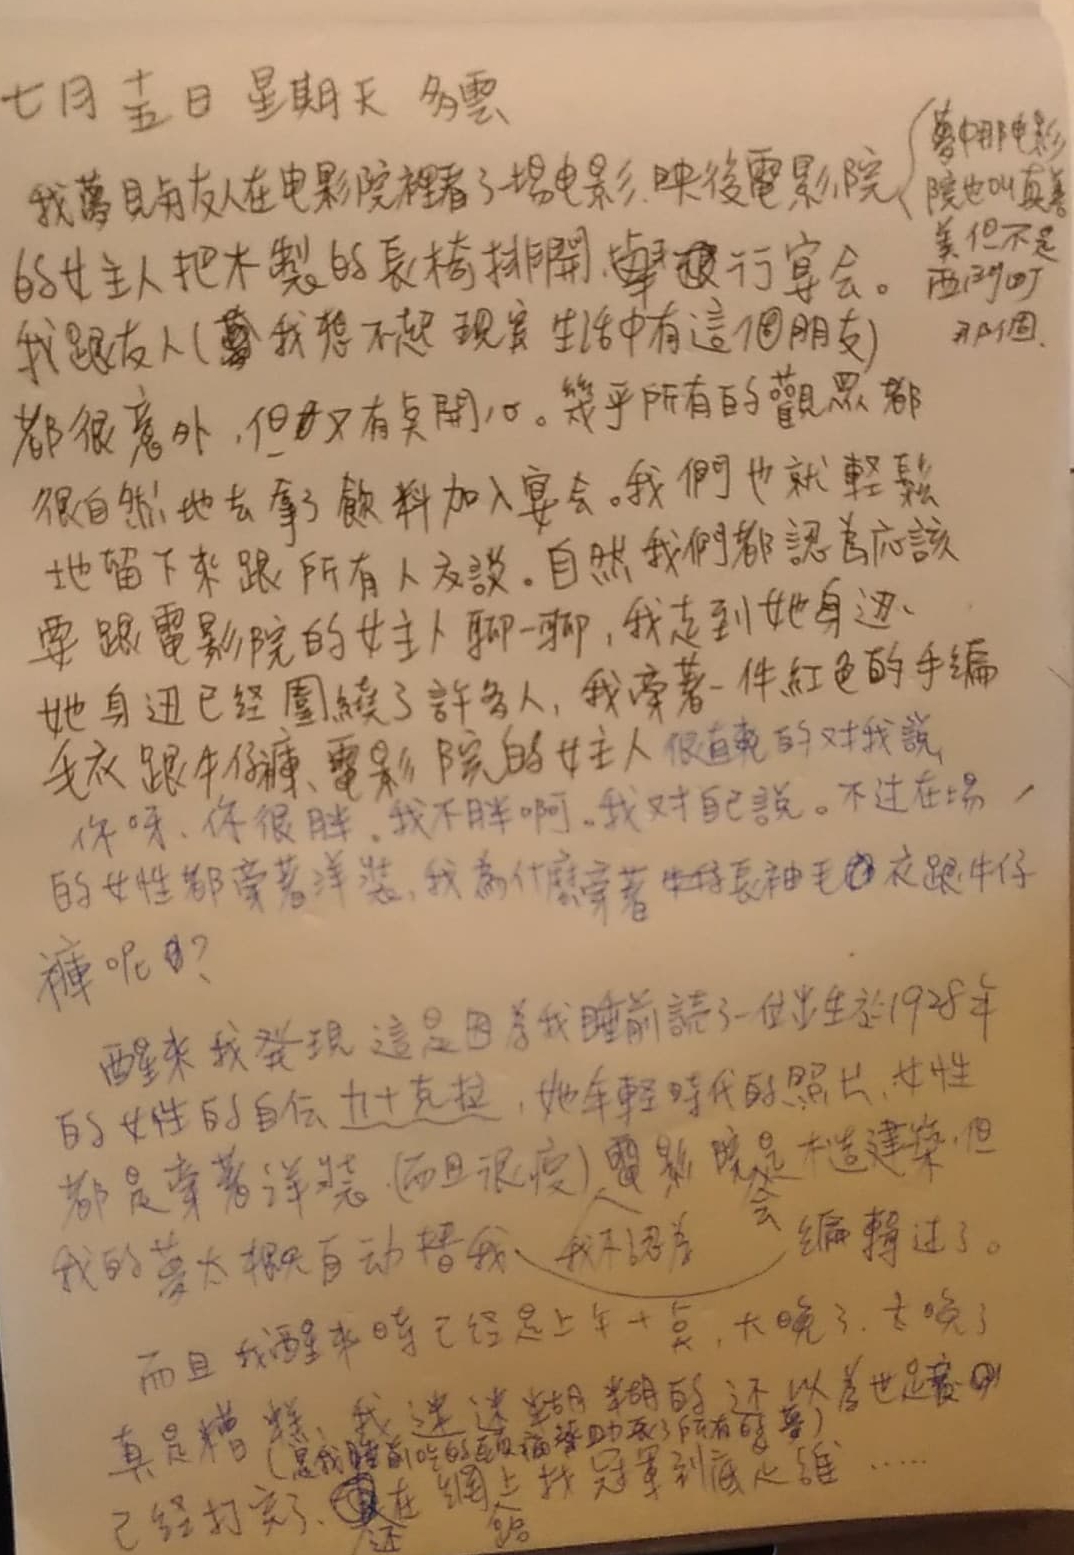 七月十五日 星期天 多雲
我夢見与友人在电影院裡看了一場电影、映後電影院
夢中那电影
院也叫真善
美但不是
西门町
那個.
的女主人把木製的長椅排開、舉行宴会。
我跟友人(我想不起現實生活中有這個朋友)
都很意外,但又有点開心。幾乎所有的觀眾都
很自然地去拿了飲料加入宴会。我們也就輕鬆
地留下來跟所有人交談。自然我們都認為應該
要跟電影院的女主人聊一聊,我走到她身边、
她身边已经圍繞了許多人,我穿著一件紅色的手編
毛衣跟牛仔褲、電影院的女主人很直接的对我說,
你呀、你很胖。我不胖啊。我对自己說。不过在場
的女性都穿著洋裝,我為什麼穿著長袖毛衣跟牛仔
褲呢?
醒來我發現這是因為我睡前読了一位出生於1928年
的女性的自伝九十克拉,她年輕時代的照片,女性
都是穿著洋裝(而且很瘦)電影院是木造建築,但
会
我的夢太自动替我、我不認為 編輯过了。
而且我醒來時已经是上午十点,太晚了.太晚了
真是糟糕、我迷迷糊糊的还以為也是
(是我睡前吃的頭痛藥助長了所有的夢)
已经打完了、还在網上找冠軍到底是誰……